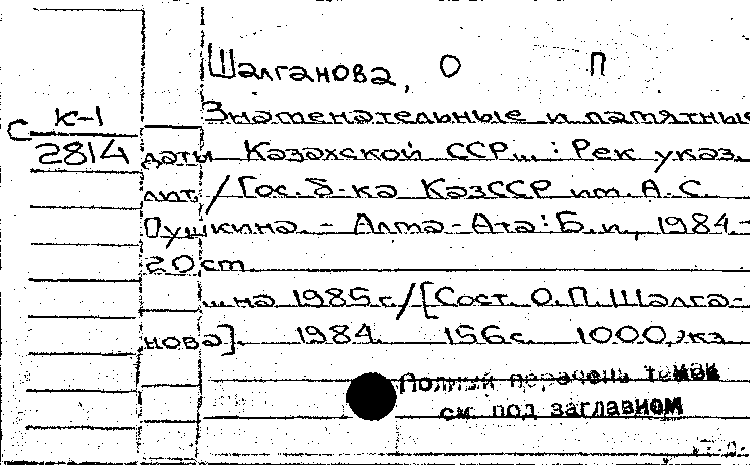 Шалганова, О П
К-1
Знаменательные и памятные
С 2814
даты Казахской ССР... : Рек указ.
лит/Гос. б-ка КазССР им. А.С.
Пушкина. - Алма-Ата: Б.и., 1984-
20 ст.
...на 1985 г/[Сост. О.П. Шалга-
нова]. 1984. 156 с. 1000 экз
Полный перечень томов
см. под заглавием